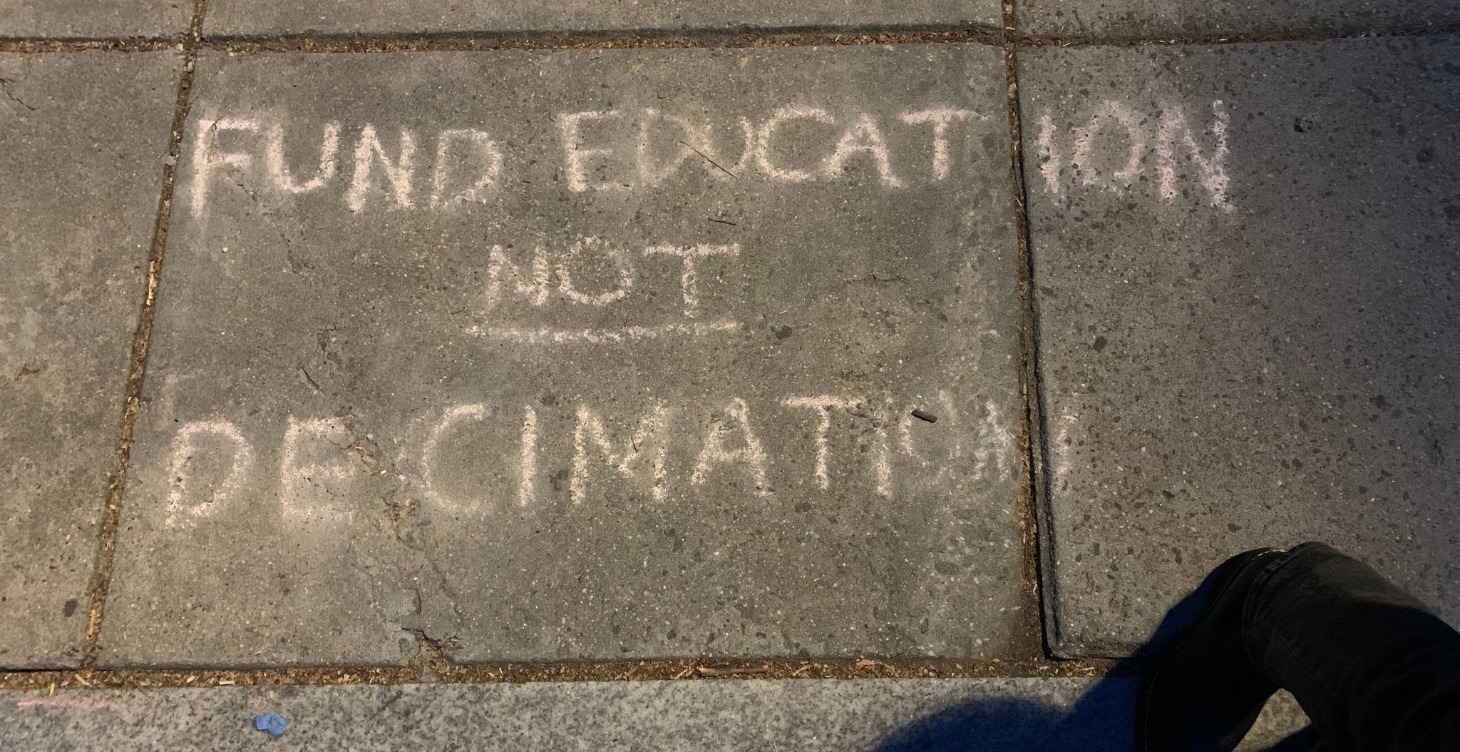 FUND EDUCATION
NOT
DECIMATION